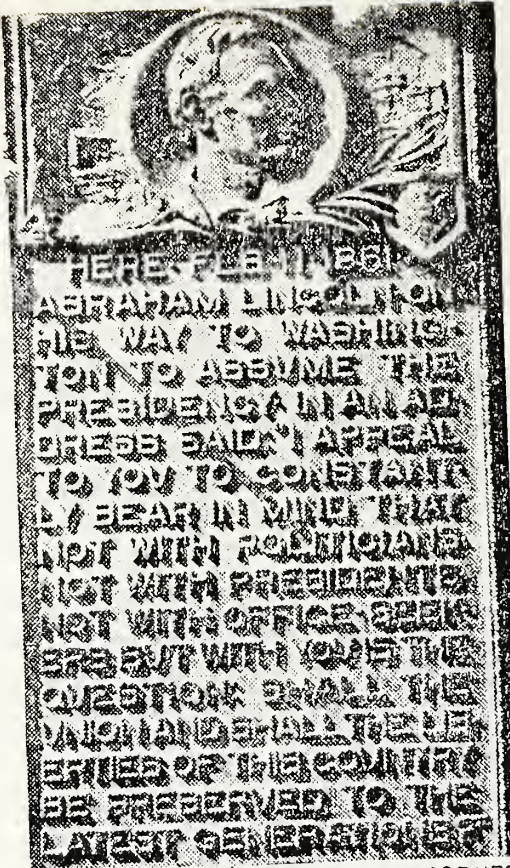 HERE, FEB. 11, 1861,
ABRAHAM LINCOLN, ON
HIS WAY TO WASHING-
TON TO ASSVME THE
PRESIDENCY, IN AN AD-
DRESS SAID: I APPEAL
TO YOV TO CONSTANT-
LY BEAR IN MIND THAT
NOT WITH POLITICIANS,
NOT WITH PRESIDENTS,
NOT WITH OFFICE-SEEK-
ERS, BVT WITH YOV IS THE
QVESTION: SHALL THE
VNION AND SHALL THE LIB-
ERTIES OF THE COVNTRY
BE PRESERVED TO THE
LATEST GENERATIONS?